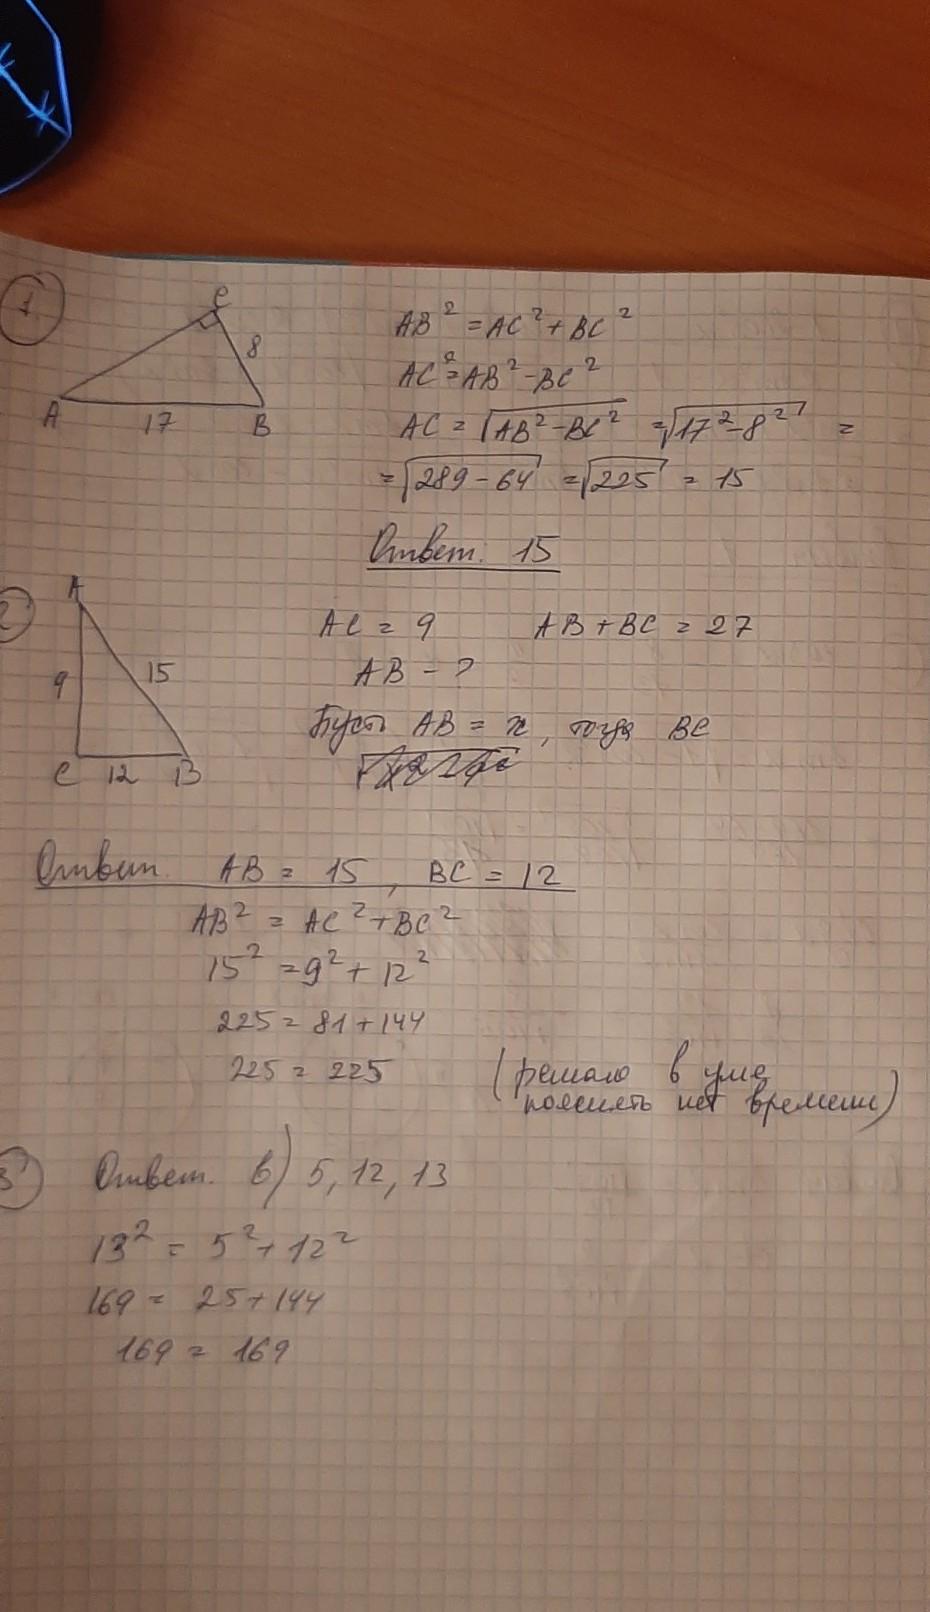 1
C
8
A 17 B
AB² = AC² + BC²
AC² = AB² - BC²
AC = √AB² - BC² = √17² - 8² =
= √289 - 64 = √225 = 15
Ответ: 15
2
A
9 15
C 12 B
AC = 9 AB + BC = 27
AB - ?
Пусть AB = x, тогда BC
Ответ. AB = 15, BC = 12
AB² = AC² + BC²
15² = 9² + 12²
225 = 81 + 144
225 = 225
(решаю в уме
пояснять нет времени)
3
Ответ. в) 5, 12, 13
13² = 5² + 12²
169 = 25 + 144
169 = 169